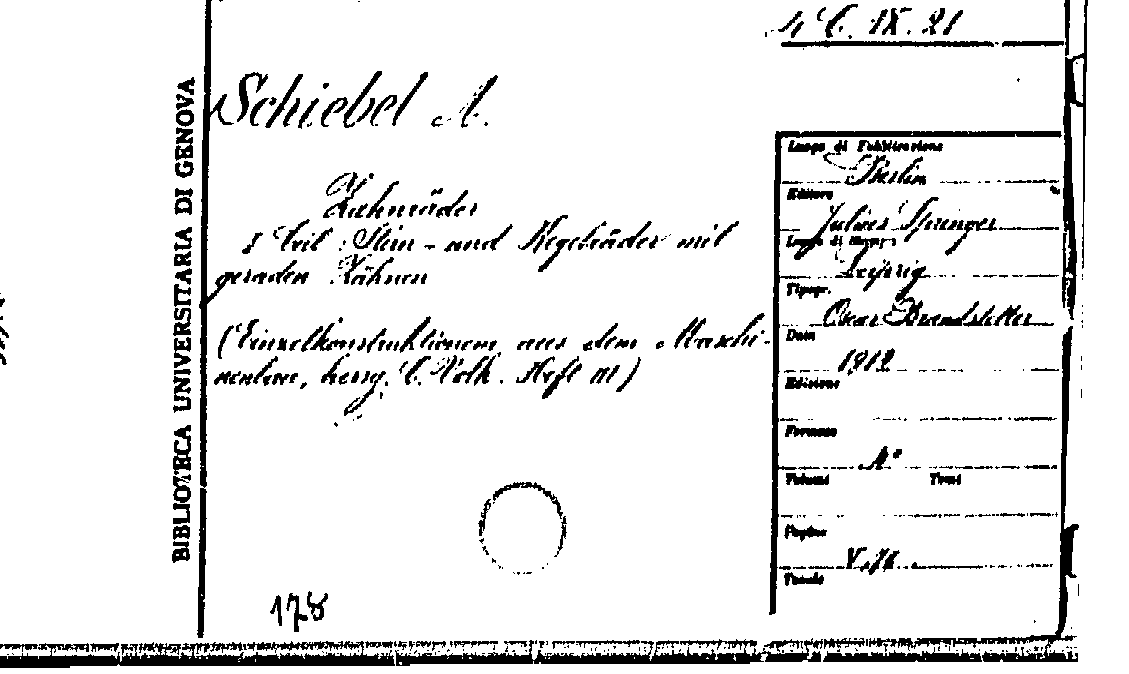 4 C. IX. 21
BIBLIOTECA UNIVERSITARIA DI GENOVA
Schiebel A.
Zahnräder
I Teil: Stirn- und Kegelräder mit
geraden Zähnen
(Einzelkonstruktionen aus dem Maschi-
nenbau, hersg. C. Volk. Heft III)
178
Luogo di Pubblicazione
Berlin
Editore
Julius Springer
Luogo di stampa
Leipzig
Tipogr.
Oscar Brandstetter
Data
1912
Edizione
Formato
Volumi Tomi
Pagine
Tavole